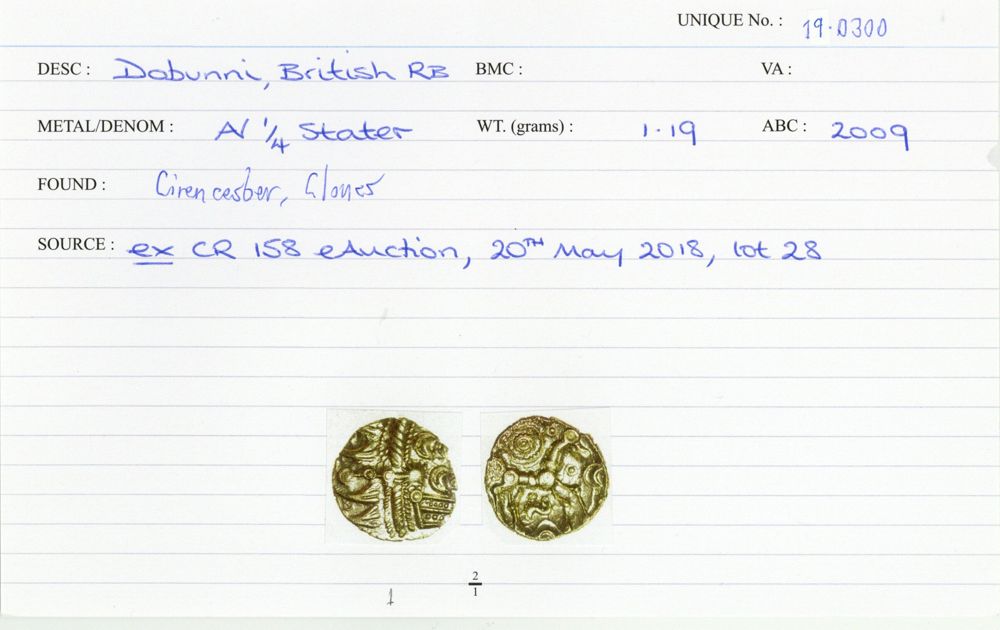 UNIQUE No. : 19.0300
DESC : Dobunni, British RB BMC : VA :
METAL/DENOM : AV 1/4 Stater WT. (grams) : 1.19 ABC : 2009
FOUND : Cirencester, Gloucs
SOURCE : ex CR 158 eAuction, 20TH May 2018, lot 28
2/1
1